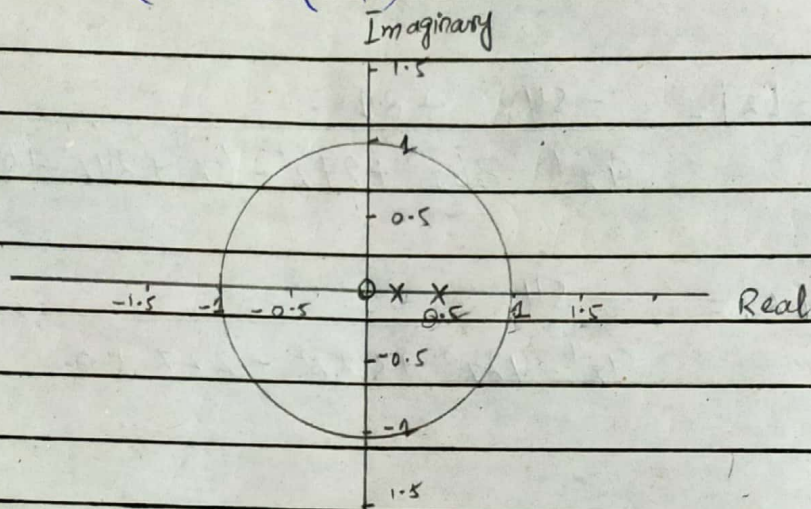 Imaginary
1.5
1
0.5
-1.5 -1 -0.5 0.5 1 1.5 Real
-0.5
-1
1.5